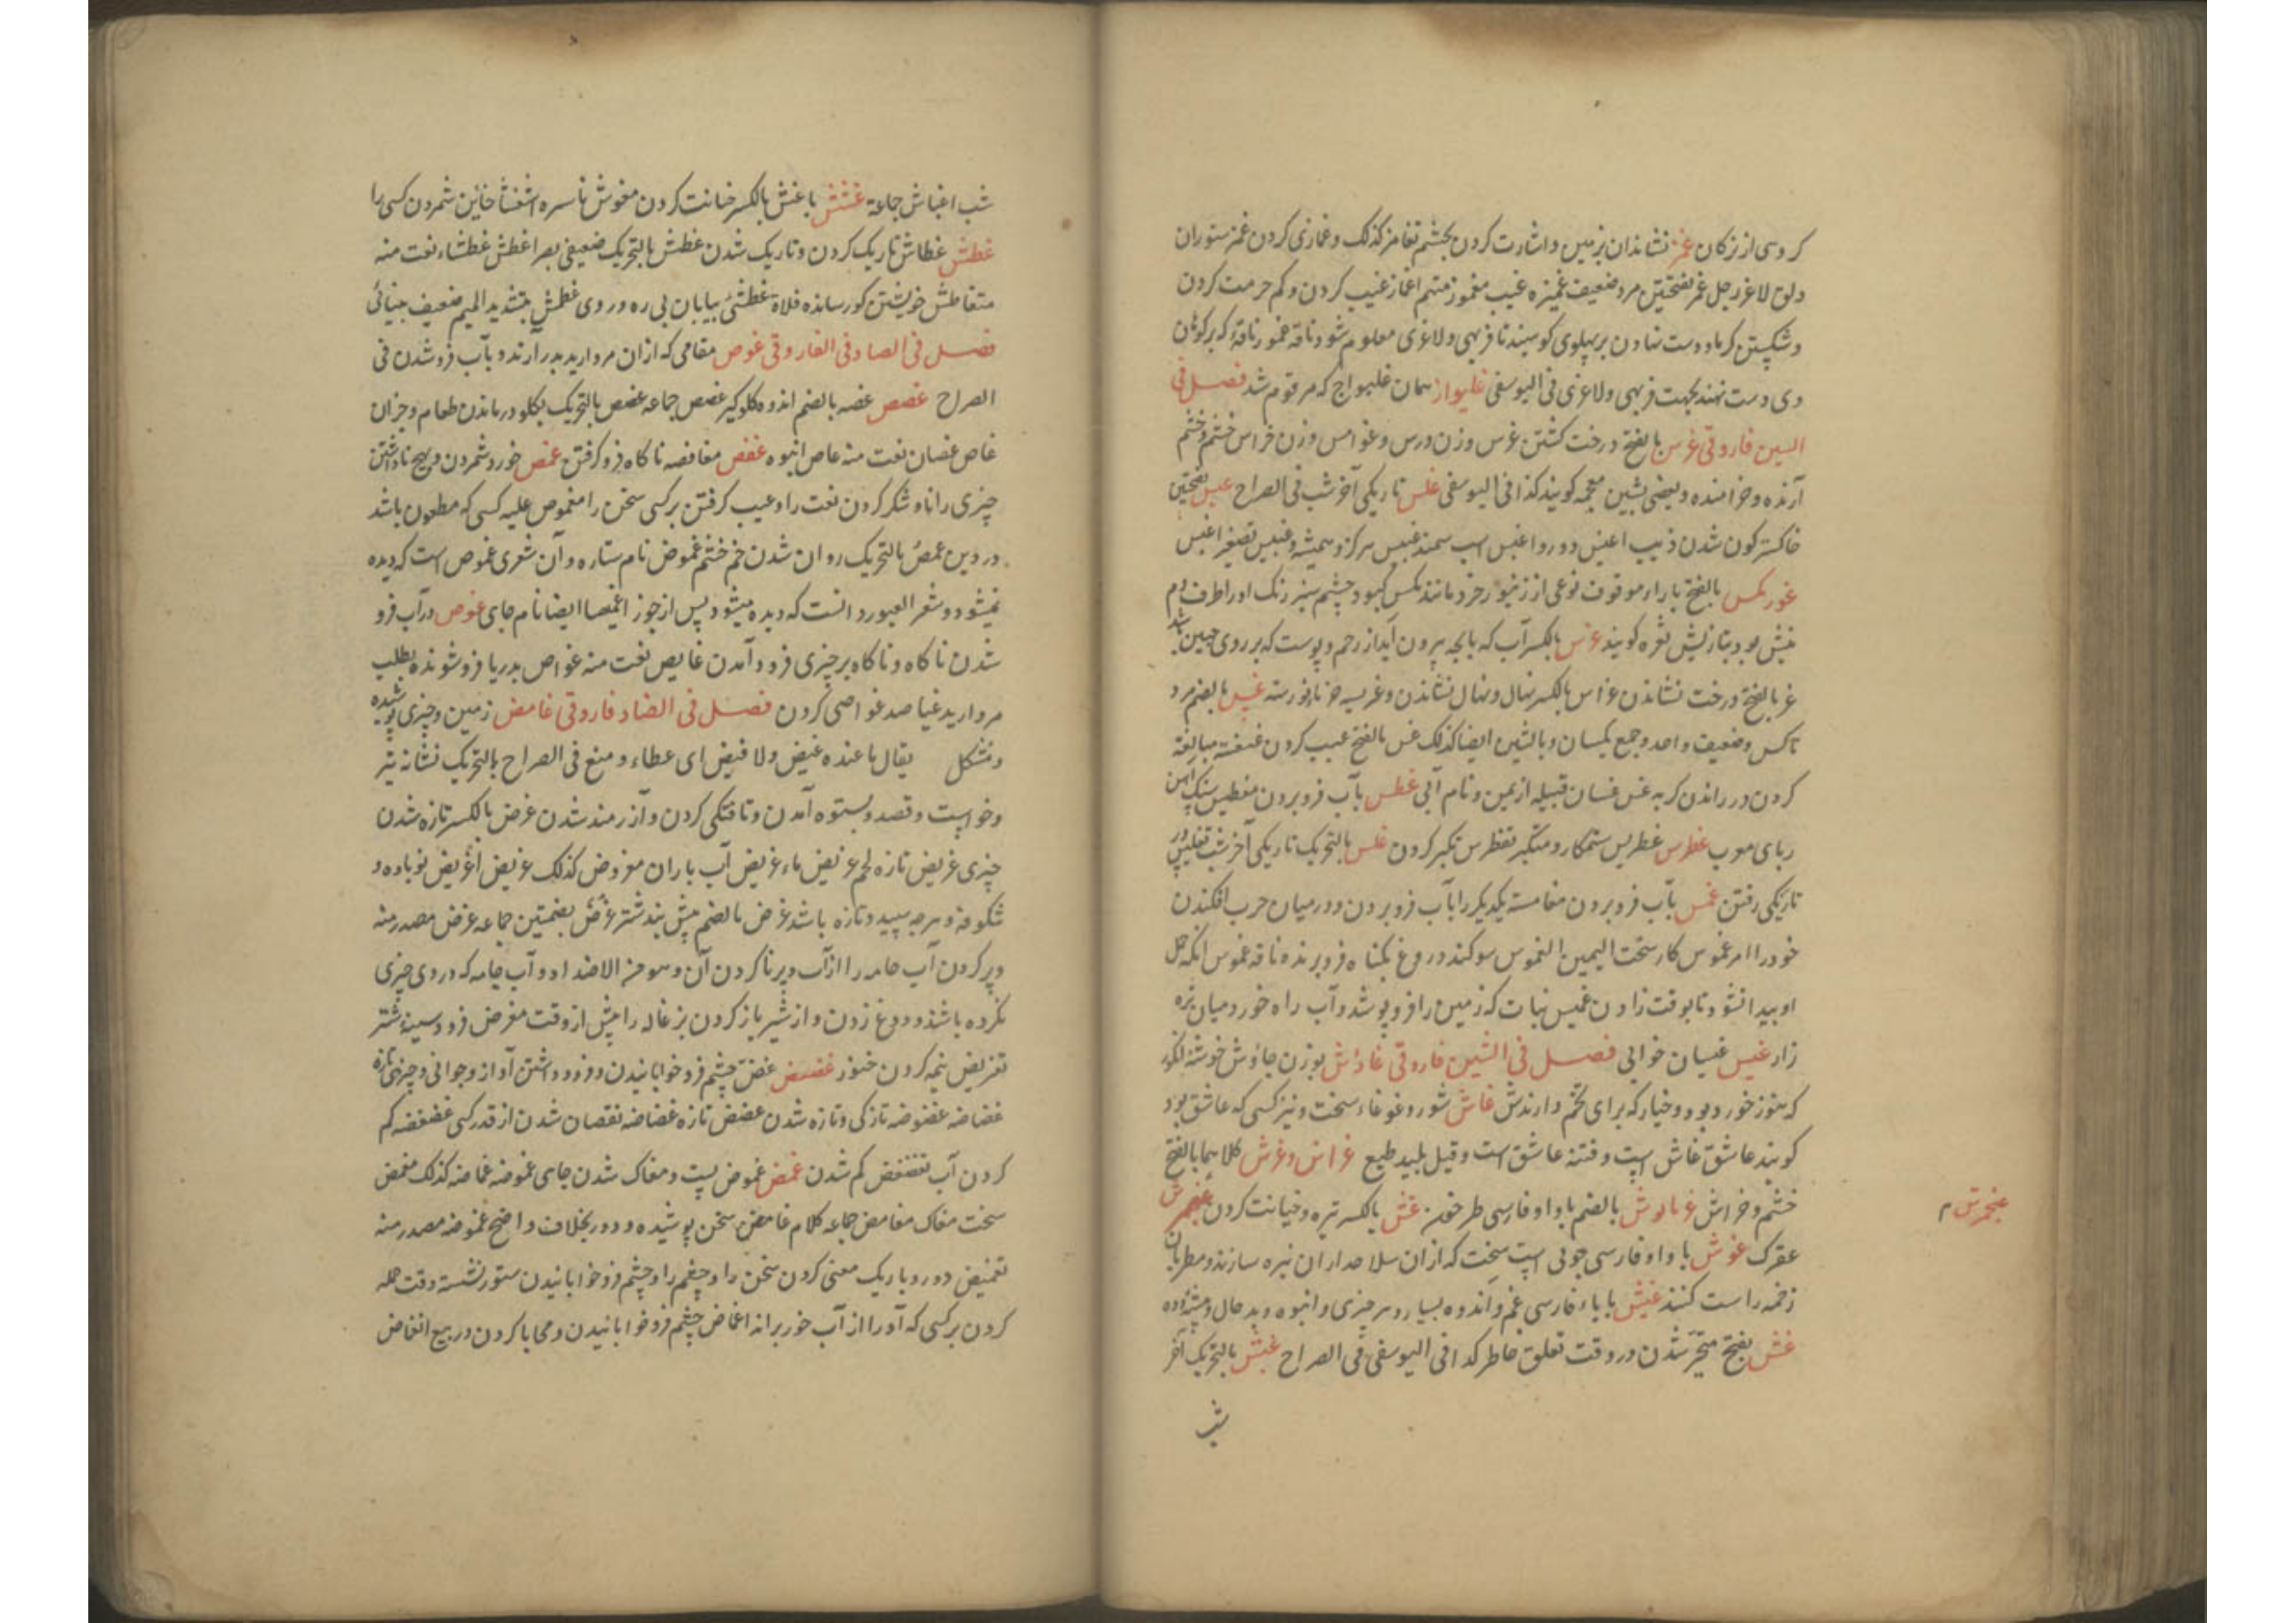 کروهی از ترکان غمز نشاندان بزمین و اشارت کردن بچشم تغامز کذلک و غمازی کردن غمز ستوران
و لون لاغر رجل غمز بفتحتین مرد ضعیف غمیزه عیب مغموز متهم اغماز عیب کردن و کم حرمت کردن
و شکستن کرما و دست نهادن بر پهلوی کوسپند تا فربهی و لاغری معلوم شود ناقه غموز ناقهٔ که بر کوهان
وی دست نهند بجهت فربهی و لاغری فی الیوسفی غلیواز همان غلیواج که مرقوم شد فصل فی
السین فاروقی غرس بالفتح درخت کشتن غرس وزن درس و غوامس وزن فراس خشم و خشم
آرنده و خرامنده و بعضی بشین معجمه کویند کذا فی الیوسفی غلس تاریکی آخر شب فی الصراح غبس بفتحتین
خاکستر کون شدن ذیب اغبس دورو اغبس اسب سمند غبیس هرکز و همیشه و غبیس تصغیر اغبس
غورمکس بالفتح با راء موقوف نوعی از زنبور خرد مانند مکس کبود چشم سبز رنک او را طرف دم
نیش بود بتازیش نغره کویند غرس بالکسر آب که با بچه بیرون آید از رحم و پوست که بر روی جنین باشد
غر بالفتح درخت نشاندن غراس بالکسر نهال و نهال نشاندن و غریسه خرمابن نورسته غس بالضم مرد
ناکس و ضعیف واحد و جمع یکسان و بالشین ایضا کذلک غس بالفتح عیب کردن غسغسة مبالغة
کردن در راندن کربه غس غسان قبیله از یمن و نام آبی غطس بآب فرو بردن مغطیس سنک آهن
ربای معرب غطرس غطریس ستمکار و متکبر تغطرس تکبر کردن غلس بالتحریک تاریکی آخر شب تغلیس در
تاریکی رفتن غمس بآب فرو بردن مغامسة یکدیکر را بآب فرو بردن و در میان حرب افکندن
خود را امر غموس کار سخت الیمین الغموس سوکند دروغ بکناه فرو برنده ناقه غموس انکه حمل
او پیدا نشود تا بوقت زادن غمیس نبات که زمین را فرو پوشد و آب راه خورد میان تره
زار غیس غیسان جوانی فصل فی الشین فاروقی غاوش بوزن جاوش خوشهٔ انکور
که هنوز خورد بود و خیار که برای تخم دارندش غاش شور و غوغاء سخت و نیز کسی که عاشق بود
کویند عاشق غاش است و فتنه عاشق است و قیل بلید طبع غراش و غرش کلاهما بالفتح
خشم و خراش غرالوش بالضم با واو فارسی طرخون غش بالکسر تیره و خیانت کردن غنجرش
غنجرش م
عقرک غوش با واو فارسی چوبی است سخت که از ان سلاحداران نیزه سازند و مطربان
زخمه راست کنند غیش با یاء فارسی غم و اندوه بسیار و هر چیزی و انبوه و بدحال و بیشه زده
غش بفتح متحیر شدن در وقت تعلق خاطر کذا فی الیوسفی فی الصراح غبش بالتحریک آخر
شب
شب اغباش جماعة غشش با غش بالکسر خیانت کردن مغوش ناسره استغشاش خاین شمردن کسی را
غطش غطاش تاریک کردن و تاریک شدن غطش بالتحریک ضعیفی بصر اغطش غطشاء نعت منه
متغاطش خویشتن کور سازنده فلاة غطشیٰ بیابان بی ره و روی غطمش بتشدید المیم ضعیف بینائی
فصل فی الصاد فی الفاروقی غوص مقامی که از ان مروارید بدر آرند و بآب فرو شدن فی
الصراح غصص غصه بالضم اندوه کلوکیر غصص جماعه غصص بالتحریک بکلو در ماندن طعام و جز آن
غاص غصان نعت منه غاص انبوه غفص مغافصه ناکاه فرو کرفتن غمص خورد شمردن و هیچ نداشتن
چیزی را ناشکر کردن نعت را و عیب کرفتن برکسی سخن را مغموص علیه کسی که مطعون باشد
در دین غمص بالتحریک روان شدن خم خشم غموض نام ستاره و آن شعری غموص است که دیده
نمیشود و شعر العبور دانست که دیده میشود پس از جوز اغمیصا ایضا نام جای غوص در آب فرو
شدن ناکاه و ناکاه برچیزی فرود آمدن غایص نعت منه غواص بدریا فرو شونده بطلب
مروارید غیاصه غواصی کردن فصل فی الضاد فاروقی غامض زمین و چیزی پوشیده
و مشکل یقال ما عنده غیض و لا فیض ای عطاء و منع فی الصراح بالتحریک نشانه تیر
و خواست و قصد و بستوه آمدن و تافتکی کردن و آرزمند شدن غرض بالکسر تازه شدن
چیزی غریض تازه لحم غریض ماء غریض آب باران مغروض کذلک غریض اغریض نوباوه و
شکوفه و هرچه سپید و تازه باشد غرض بالضم پیش بند شتر غرض بضمتین جماعه غرض مصدر منه
و پر کردن آب جامه را از آب و پر ناکردن آن و هو من الاضداد و آب جامه که در وی چیزی
نکرده باشد و دوغ زدن و از شیر باز کردن بزغاله را پیش از وقت مغرض فرود سینهٔ شتر
تغریض نیمه کردن خنوز غضض غض چشم فرو خوابانیدن و فرو داشتن آواز و جوانی و چیزی تازه
غضاضه غضوضه تازکی و تازه شدن غضض تازه غضاضه نقصان شدن از قدر کسی غضغضه کم
کردن آب تغضغض کم شدن غمض غموض پست و مغاک شدن جای غموضه غماضه کذلک مغمض
سخت مغاک مغامض جماعه کلام غامض سخن پوشیده و دور بخلاف واضح غموضه مصدر منه
تغمیض دور و باریک معنی کردن سخن را و چشم را و چشم فرو خوابانیدن ستور نشسته وقت حمله
کردن برکسی که او را از آب خور براند اغماض چشم فرو خوابانیدن و محابا کردن در بیع انغماض